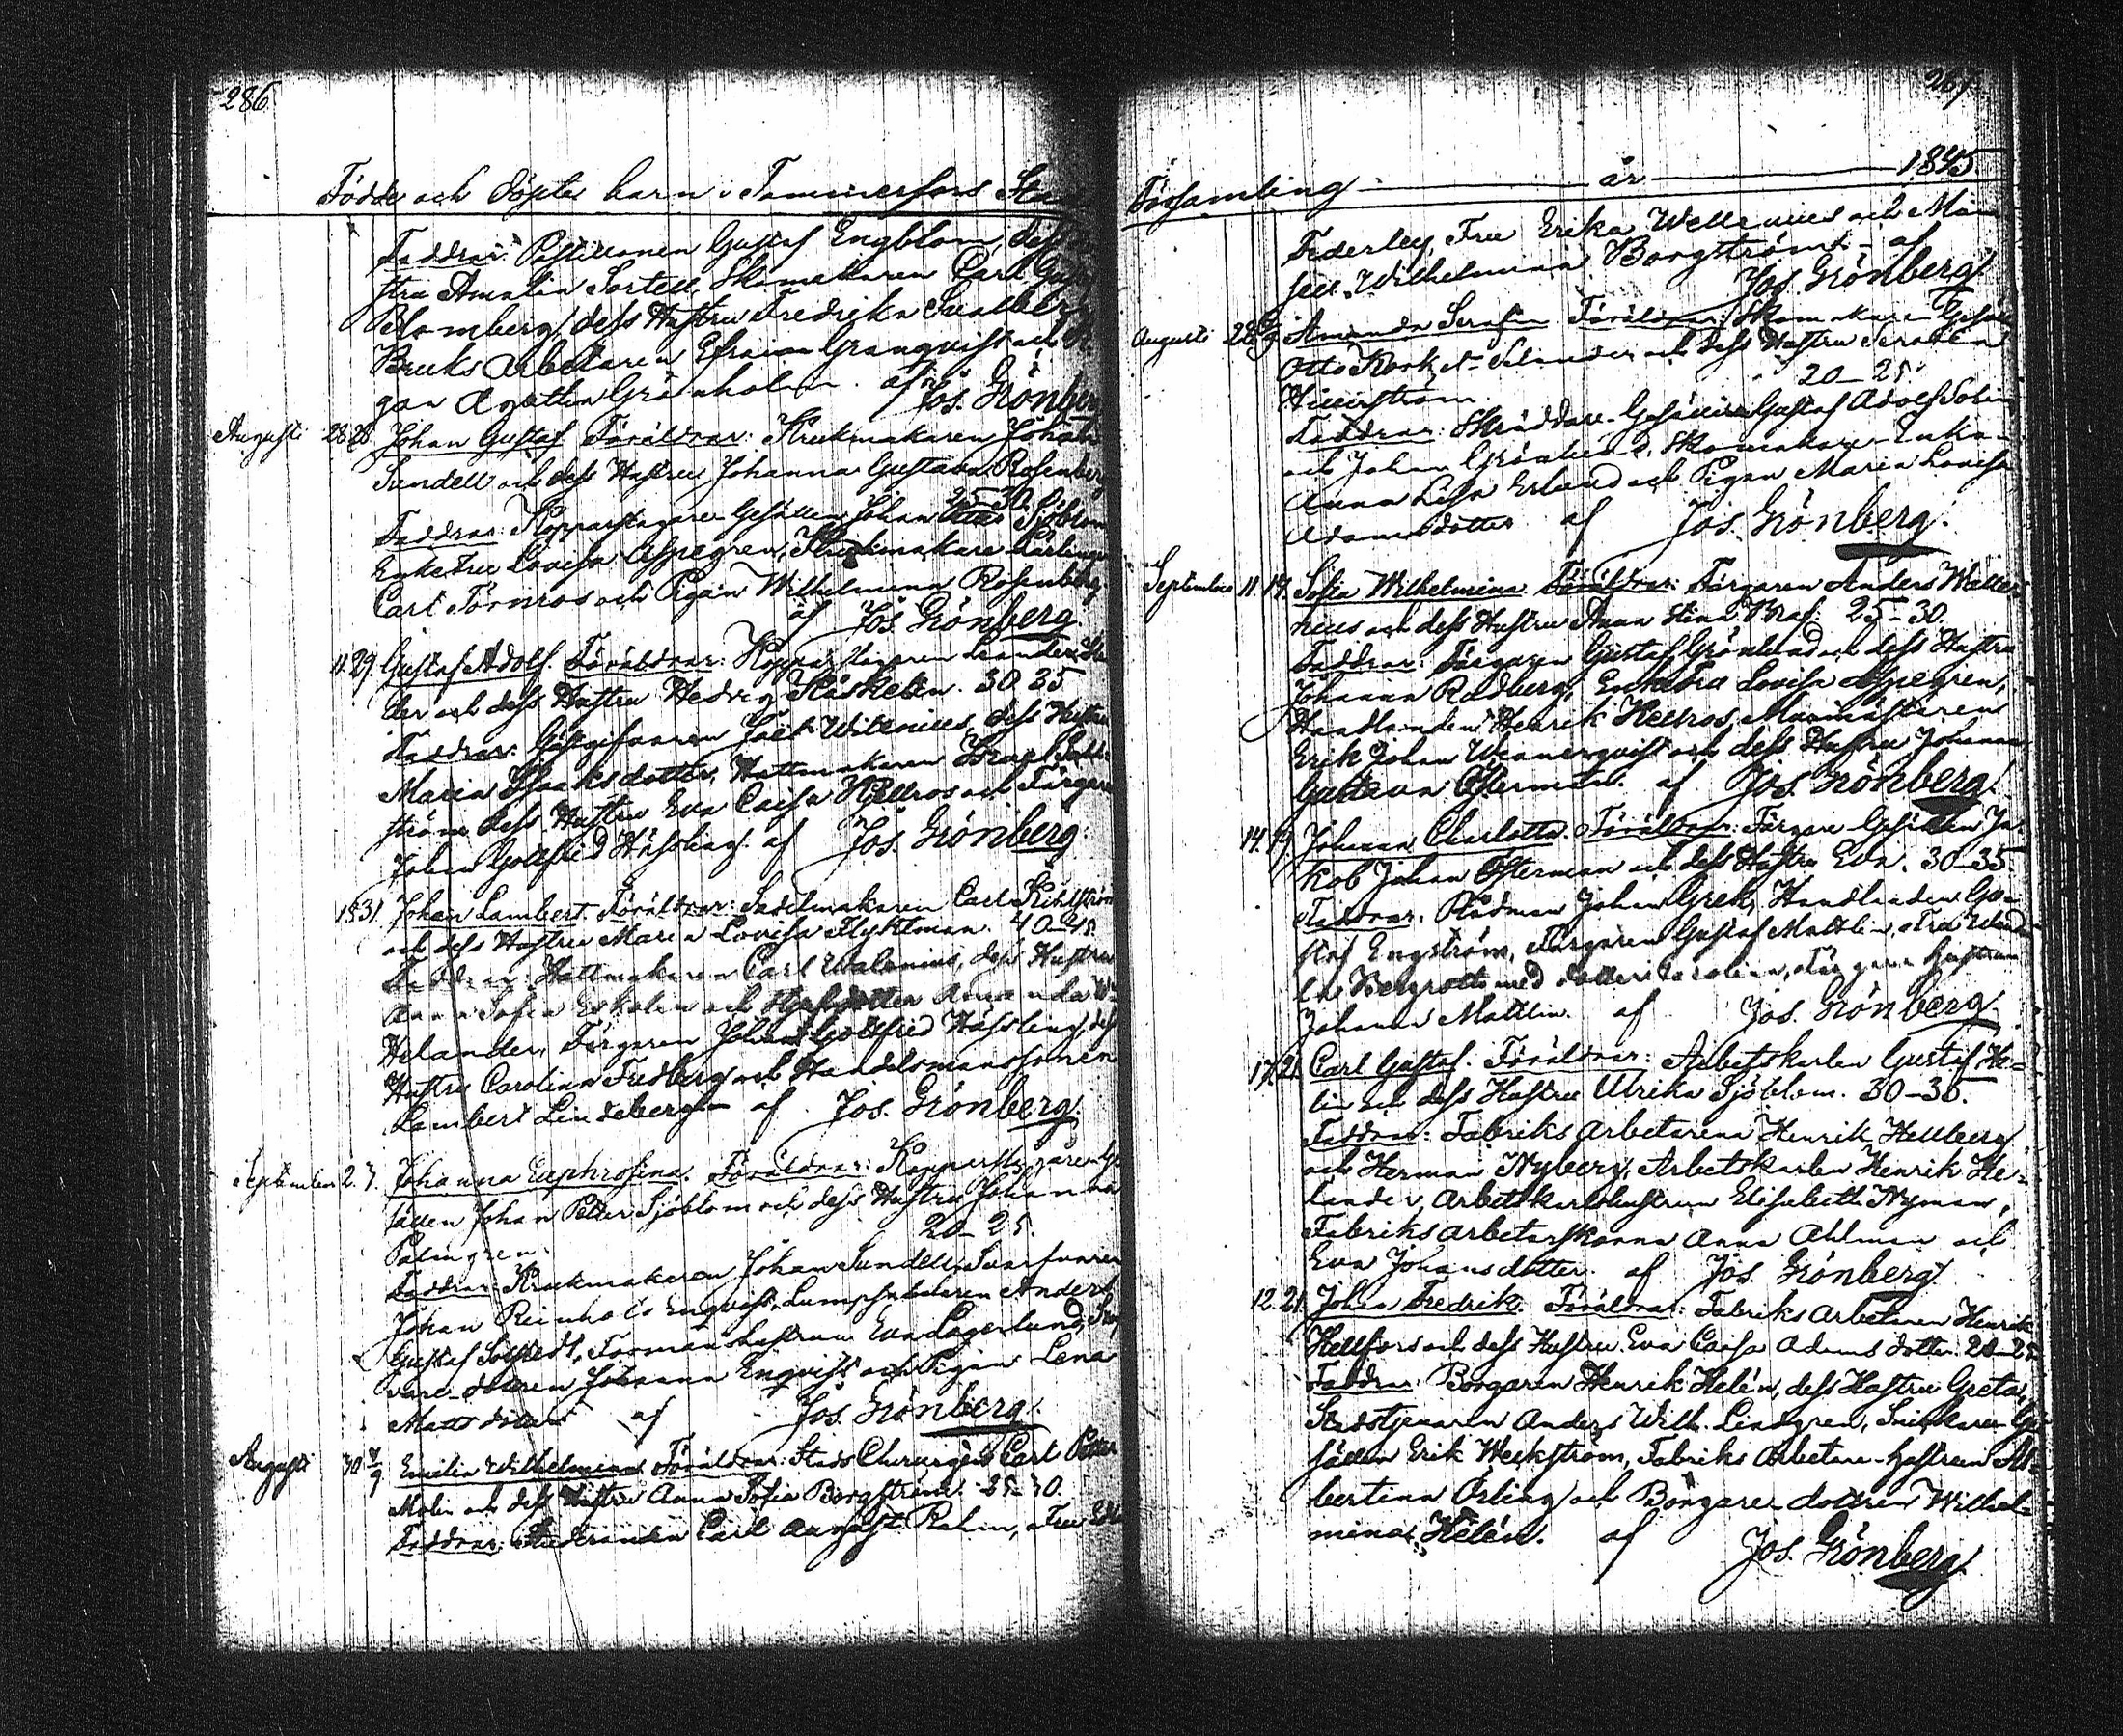 286
Födde och Döpte barn i Tammerfors Stads
Faddrar: Postillionen Gustaf Engblom, dess
stru Amalia Sortell, Skomakaren Carl
Blomberg, dess Hustru Fredrika
Bruks Arbetaren Efraim Granqvist och
gan Agatha Grönholm. af Jos. Grönberg
Augusti 28. 28. Johan Gustaf. Föräldrar: Krukmakaren Johan
Sundell och dess Hustru Johanna Gustava Rosenberg
25-30.
Faddrar: Kopparslagare Gesällen Johan Petter Sjöblom
Enkefru Lovisa Aspegren, Krukmakare Lärlingen
Carl Törnros och Pigan Wilhelmina Rosenberg
af Jos. Grönberg.
11. 29. Gustaf Adolf. Föräldrar: Kopparslagaren Leander
der och dess Hustru Hedvig Käskelin. 30 35
Faddrar: Gästgifvaren Jack Witenius, dess Hustru
Maria Isaaksdotter, Hattmakaren Israel
ström dess Hustru Eva Caisa Hellros och Färgaren
Johan Gottfrid Hässling. af Jos. Grönberg.
18. 31. Johan Lambert. Föräldrar: Sadelmakaren Carl Kihlström
och dess Hustru Maria Lovisa Flyktman. 40-45.
Faddrar: Hattmakaren Carl Walenius, dess Hustru
Anna Sofia Eskolin och Amanda
Helander, Färgaren Johan Gottfrid Hässling, dess
Hustru Carolina Fredberg och Handelsmanssonen
Lambert Lindeberg. af Jos. Grönberg.
September 2. 7. Johanna Euphrosina. Föräldrar: Kopparslagare Ge
sällen Johan Petter Sjöblom och dess Hustru Johanna
20-25.
Palmgren.
Faddrar: Krukmakaren Johan Sundell, Svarfvaren
Johan Reinhold Engvist, Lumpsamlaren Anders
Gustaf Solstedt, Formanshustrun Eva Lagerlund,
vare-dottren Johanna Enqvist och Pigan Lena
Mattsdotter af Jos. Grönberg.
Augusti 30. 7/9 Emilia Wilhelmina. Föräldrar: Stads Chirurgen Carl Petter
Molin och dess Hustru Anna Sofia Borgström. 25-30.
Faddrar: Studeranden Carl August Rahm, Fru
267
Församling år 1845.
Federley, Fru Erika Wellenius och Mam
sell Wilhelmina Borgström. af
Jos. Grönberg.
Augusti 28. Amanda Serafia. Föräldrar: Skomakare Gesällen
Otto Selander och dess Hustru Serafia
20-25.
Hillerström.
Faddrar: Skräddare-Gesällerne Gustaf Adolf Dolin
och Johan Grönlund, Skomakare-Enkan
Anna Lisa Erlund och Pigan Maria Lovisa
Adamsdotter af Jos. Grönberg.
September 11. 14. Sofia Wilhelmina. Föräldrar: Färgaren Anders Walle
nius och dess Hustru Anna Stina Braf. 25-30.
Faddrar: Färgaren Gustaf Grönblad och dess Hustru
Johanna Rodberg, Enkefru Lovisa Aspegren,
Handlanden Henrik Hellros, Murmästaren
Erik Johan Wennerqvist och dess Hustru Johanna
Gustava Österman. af Jos. Grönberg.
14. 19. Johanna Charlotta. Föräldrar: Färgare Gesällen Ja-
kob Johan Österman och dess Hustru Eva. 30-35.
Faddrar: Rådman Johan Grek, Handlanden Gu-
staf Engström, Färgaren Gustaf Mattlin, Fru
la Bergroth med dotter Carolina, Färgare hustrun
Johanna Mattlin. af Jos. Grönberg.
17. 21. Carl Gustaf. Föräldrar: Arbetskarlen Gustaf He-
lin och dess Hustru Ulrika Sjöblom. 30-35.
Faddrar: Fabriks Arbetarena Henrik Hellberg
och Herman Nyberg, Arbetskarlen Henrik He-
lander, Arbetskarlshustrun Elisabeth Nyman,
Fabriks Arbeterskorna Anna Ahlman och
Eva Johansdotter. af Jos. Grönberg.
12. 21. Johan Fredrik. Föräldrar: Fabriks Arbetaren Henrik
Hellfors och dess Hustru Eva Caisa Adamsdotter. 20-25
Faddrar: Borgaren Henrik Helén, dess Hustru Greta,
Stadstjenaren Anders Wilh. Lindgren, Snickare-Ge
sällen Erik Weckström, Fabriks Arbetare-hustrun Al-
bertina Örling och Borgare-dottren Wilhel-
mina Helén. af
Jos. Grönberg.